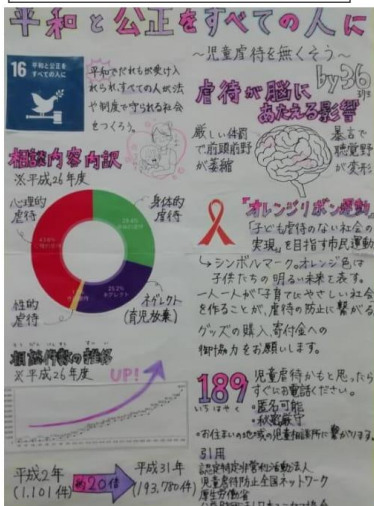 平和と公正をすべての人に
～児童虐待を無くそう～
by36
16 平和と公正を
すべての人に
平和でだれもが受け入
れられ、すべての人が法
や制度で守られる社会
をつくろう。
虐待が脳に
あたえる影響
厳しい体罰
で前頭前野
が萎縮
暴言で
聴覚野
が変形
相談内容内訳
※平成26年度
心理的
虐待
身体的
虐待
性的
虐待
ネグレクト
(育児放棄)
25.2%
ネグレクト
『オレンジリボン運動』
「子ども虐待のない社会の
実現」を目指す市民運動
↳シンボルマーク。オレンジ色は
子供たちの明るい未来を表す。
一人一人が「子育てにやさしい社会
を作ることが、虐待の防止に繋がる
グッズの購入、寄付金への
御協力をお願いします。
相談件数の推移
※平成26年度
UP!
平成2年
(1.101件)
約20倍
平成31年
(193,780件)
189
いちはやく
児童虐待かもと思ったら
すぐにお電話ください。
・匿名可能
・秘密厳守
・お住まいの地域の児童相談所に繋がります。
引用
認定特定非営利活動法人
児童虐待防止全国ネットワーク
厚生労働省